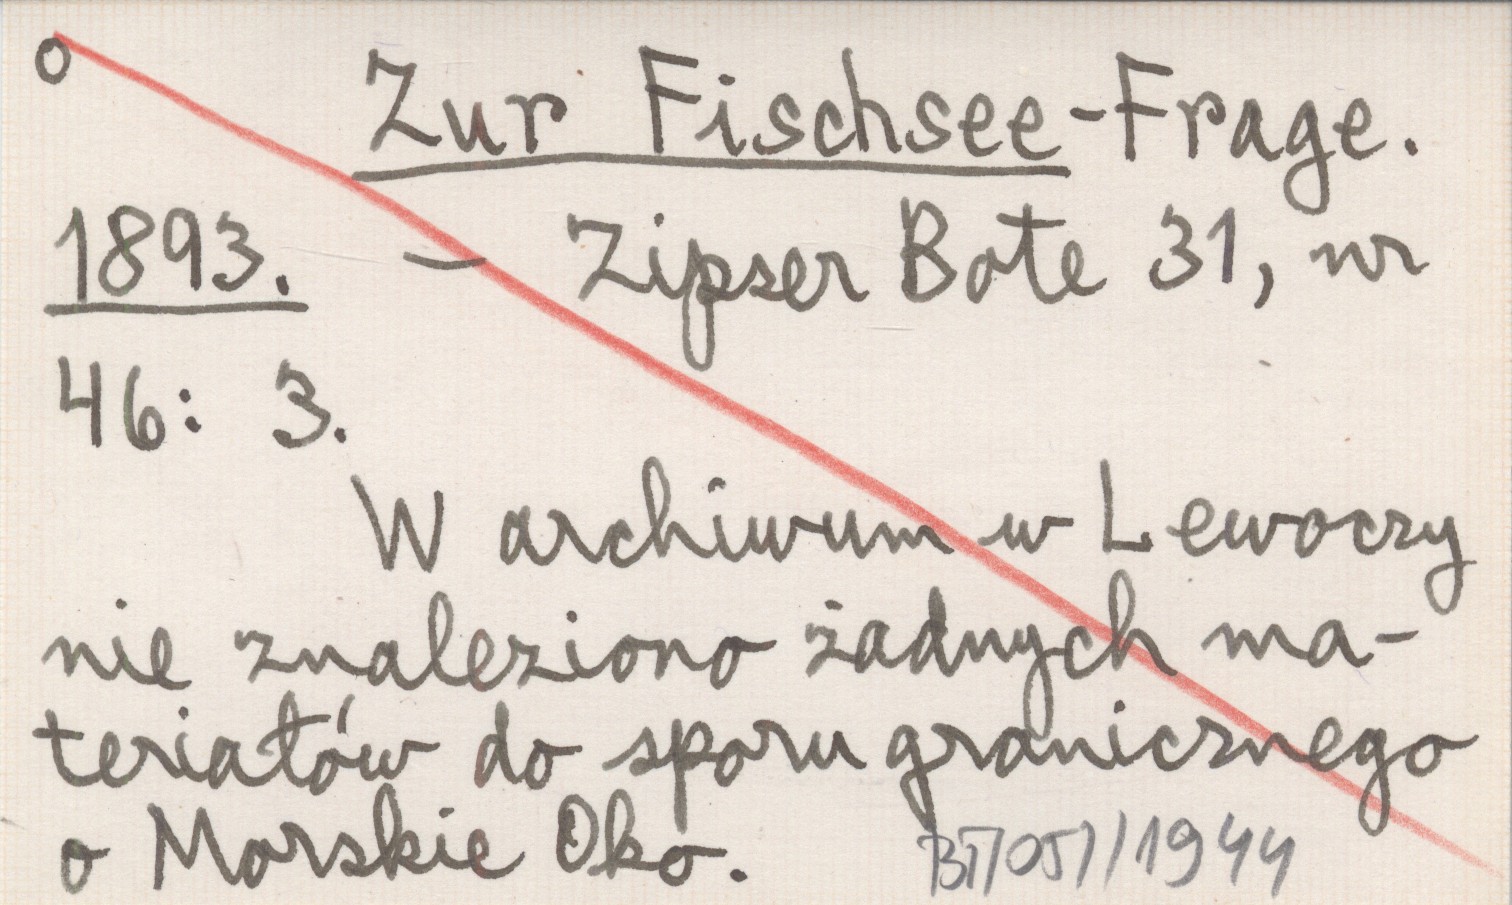 o Zur Fischsee-Frage.
1893. – Zipser Bote 31, nr
46: 3.
W archiwum w Lewoczy
nie znaleziono żadnych ma-
teriałów do sporu granicznego
o Morskie Oko.